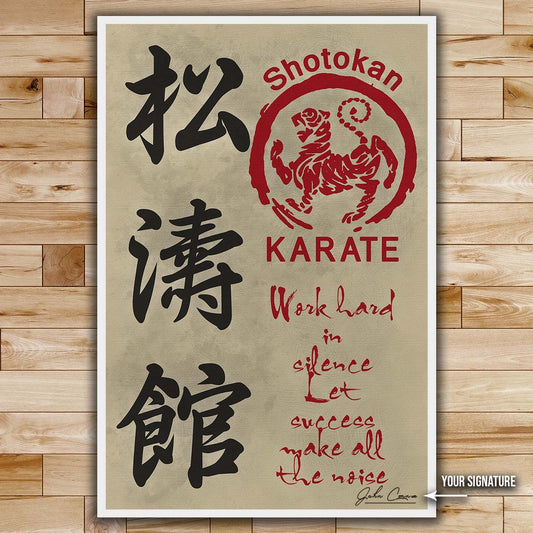 松
濤
館
Shotokan
KARATE
Work hard
in
silence
Let
success
make all
the noise
John Cena
YOUR SIGNATURE